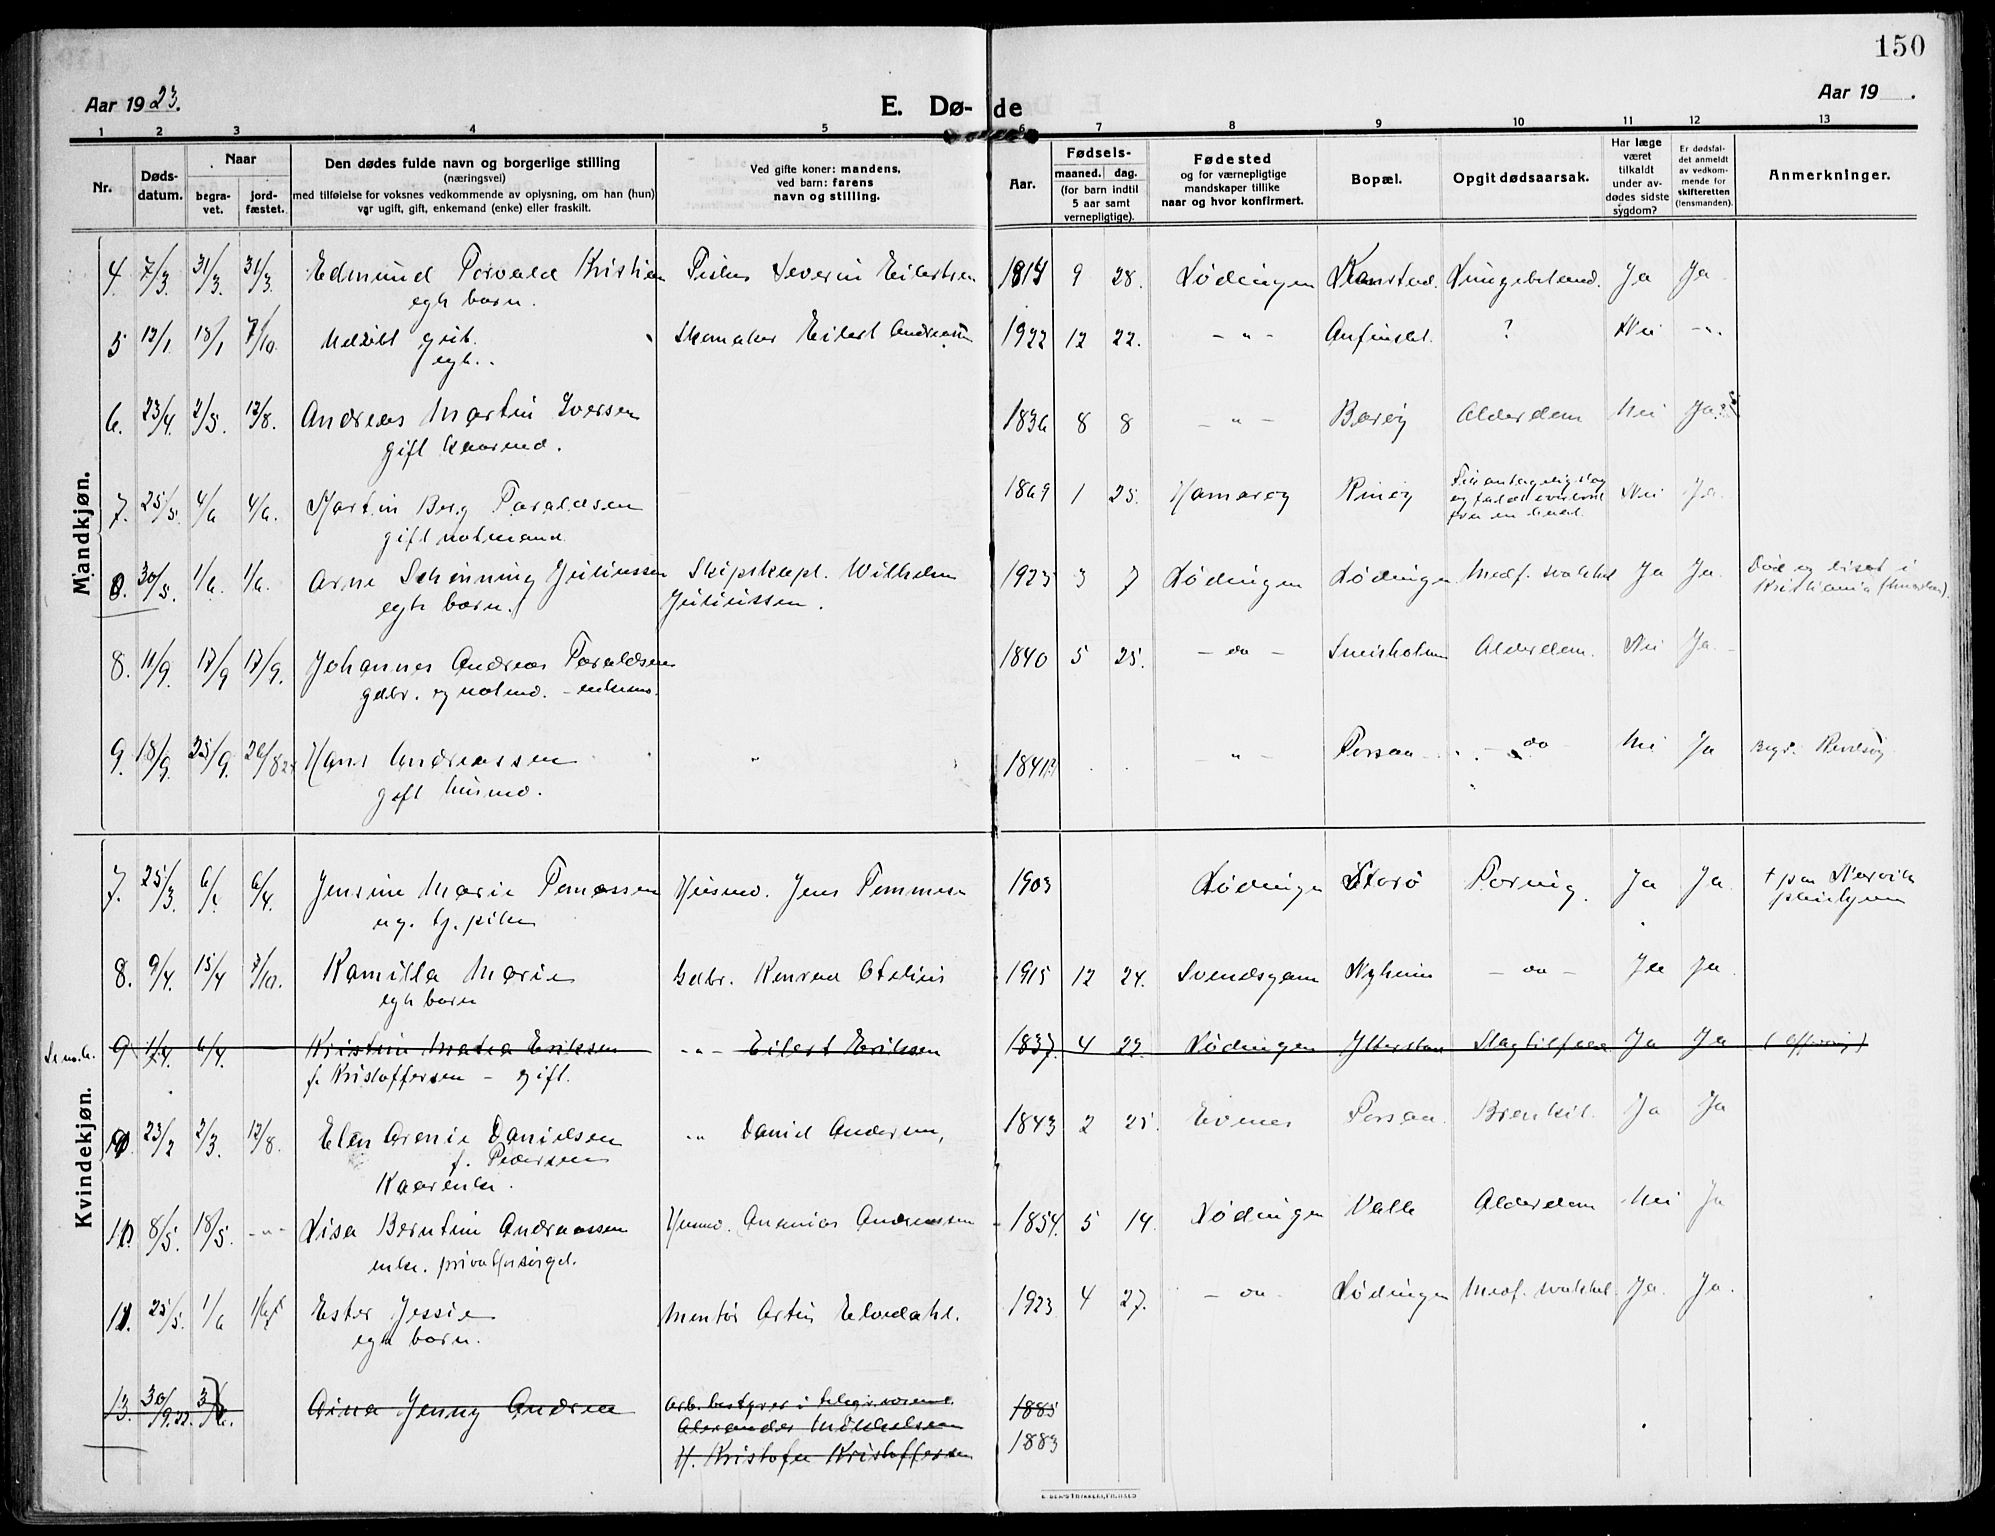 150
Aar 1923.
E. Dø- de
Aar 19 .
1 2 3 4 5 6 7 8 9 10 11 12 13
Nr.
Døds-
datum.
Naar
begra-
vet.
jord-
fæstet.
Den dødes fulde navn og borgerlige stilling
(næringsvei)
med tilføielse for voksnes vedkommende av oplysning, om han (hun)
var ugift, gift, enkemand (enke) eller fraskilt.
Ved gifte koner: mandens,
ved barn: farens
navn og stilling.
Aar.
Fødsels-
maaned. dag.
(for barn indtil
5 aar samt
vernepligtige).
Fødested
og for værnepligtige
mandskaper tillike
naar og hvor konfirmert.
Bopæl.
Opgit dødsaarsak.
Har læge
været
tilkaldt
under av-
dødes sidste
sygdom?
Er dødsfal-
det anmeldt
av vedkom-
mende for
skifteretten
(lensmanden).
Anmerkninger.
Mandkjøn.
4. 7/3. 31/3. 31/3 Edmund Torvald Kristian Fisker Severin Eilertsen 1914 9 28. Lødingen Kanstad. Lungebetænd. Ja Ja
egte barn.
5 12/1. 18/1 7/10. Udøpt gut. Skomaker Eilert Andreasen 1922 12 22. - " - ? Nei - " -
egte.
6. 23/4. 2/5. 12/8. Andreas Martin Iversen 1836 8 8 - " - Barøy Alderdom Nei Ja
gift kaarmd.
7. 25/5. 4/6 4/6. Martin Berg Toraldsen 1869 1 25. Hamarøy Rinøy Nei Ja.
gift notmand.
8. 30/5. 1/6. 1/6. Arne Schønning Juliussen Skipskapt. Wilhelm 1923 3 7 Lødingen Lødingen Medf. svakhet Ja Ja. Død og bisat i
egte barn. Juliussen. Kristiania
8. 11/9. 17/9 17/9. Johannes Andreas Toraldsen 1840 5 25. - do - Sneisholmen Alderdom. Nei Ja
gdbr. og notmd. - enkemd.
9. 18/9. 25/9. 26/8 24 Hans Andreassen " 1841 - " - Forsaa - do Nei Ja Begr.
gift husmd.
Kvindekjøn.
7. 25/3. 6/4 6/4. Jensine Marie Tomassen Husmd. Jens Tommesen 1903 Lødingen Storø Poring. Ja Ja. † paa Narvik
ug. tj. pike sykehjem
8. 9/4. 15/4 7/10. Kamilla Marie Gdbr. Konrad Otelius 1915 12 24. Nyheim - do - Ja Ja
egte barn
Se no. 6. 9 6/4. Kristine Matea Eriksen - " - Eilert Eriksen 1837. 4 22. Lødingen Slagtilfælde Ja Ja
f. Kristoffersen - gift.
10 23/2 2/3. 12/8. Elen Arenie Danielsen " Daniel Andersen, 1843 2 25. Evenes Forsaa Ja Ja
f. Pedersen
Kaarenke.
11. 8/5. 18/5. - " - Lisa Berntine Andreassen Husmd. Ananias Andreassen 1854. 5 14. Lødingen Valle Alderdom Nei Ja
enke. privatforsørget.
11. 25/5. 1/6 Ester Jessie Mentør Artin Elvedahl. 1923 4 27. - do - Lødingen Medf. svakhet. Ja. Ja.
egte barn.
13. 30/9.22. Aina Jenny Andrea Arb. bestyrer i telegr.væsenet 1885
Alexander Mikkelsen
H. Kristofer Kristoffersen 1883